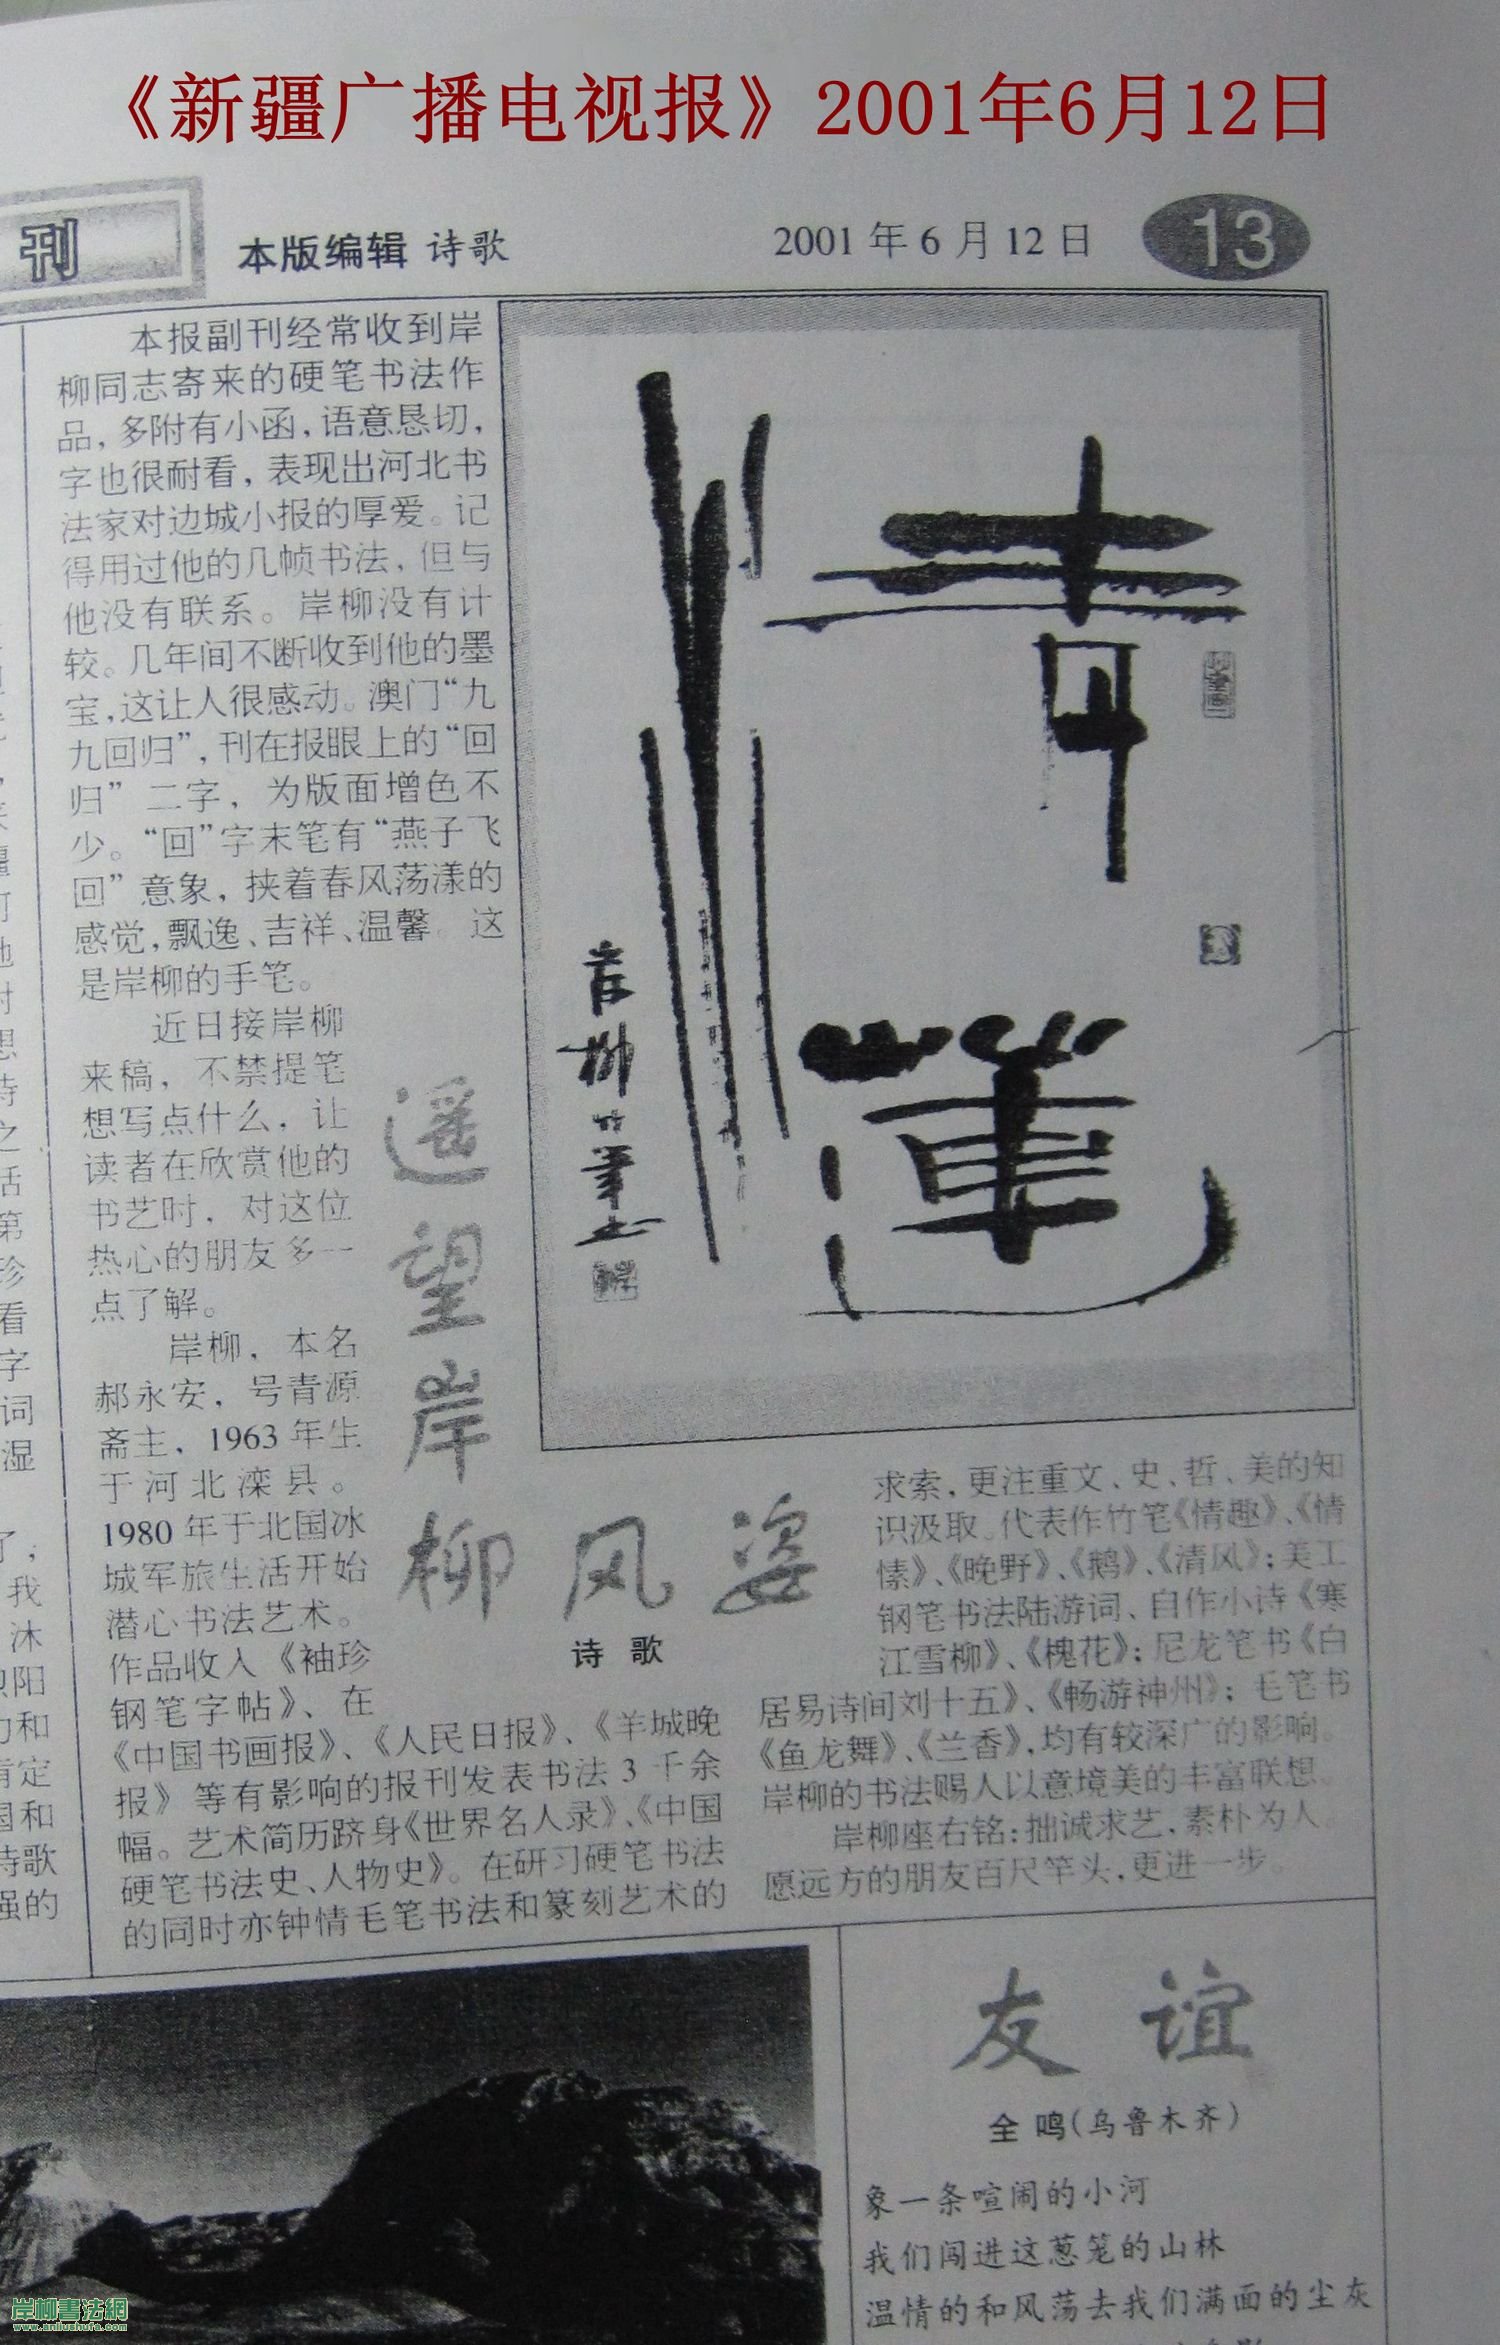 《新疆广播电视报》2001年6月12日
刊
本版编辑 诗歌
2001年6月12日
13
本报副刊经常收到岸
柳同志寄来的硬笔书法作
品,多附有小函,语意恳切,
字也很耐看,表现出河北书
法家对边城小报的厚爱。记
得用过他的几帧书法,但与
他没有联系。岸柳没有计
较。几年间不断收到他的墨
宝,这让人很感动。澳门“九
九回归”,刊在报眼上的“回
归”二字,为版面增色不
少。“回”字末笔有“燕子飞
回”意象,挟着春风荡漾的
感觉,飘逸、吉祥、温馨。这
是岸柳的手笔。
近日接岸柳
来稿,不禁提笔
想写点什么,让
读者在欣赏他的
书艺时,对这位
热心的朋友多一
点了解。
岸柳,本名
郝永安,号青源
斋主,1963年生
于河北滦县。
1980年于北国冰
城军旅生活开始
潜心书法艺术。
作品收入《袖珍
钢笔字帖》、在
《中国书画报》、《人民日报》、《羊城晚
报》等有影响的报刊发表书法3千余
幅。艺术简历跻身《世界名人录》、《中国
硬笔书法史、人物史》。在研习硬笔书法
的同时亦钟情毛笔书法和篆刻艺术的
遥望岸柳风姿
诗歌
求索,更注重文、史、哲、美的知
识汲取。代表作竹笔《情趣》、《情
愫》、《晚野》、《鹅》、《清风》;美工
钢笔书法陆游词、自作小诗《寒
江雪柳》、《槐花》;尼龙笔书《白
居易诗间刘十五》、《畅游神州》;毛笔书
《鱼龙舞》、《兰香》,均有较深广的影响。
岸柳的书法赐人以意境美的丰富联想。
岸柳座右铭:拙诚求艺,素朴为人。
愿远方的朋友百尺竿头,更进一步。
岸柳竹笔书
友谊
全鸣(乌鲁木齐)
象一条喧闹的小河
我们闯进这葱笼的山林
温情的和风荡去我们满面的尘灰
岸柳書法網
www.anliushufa.com